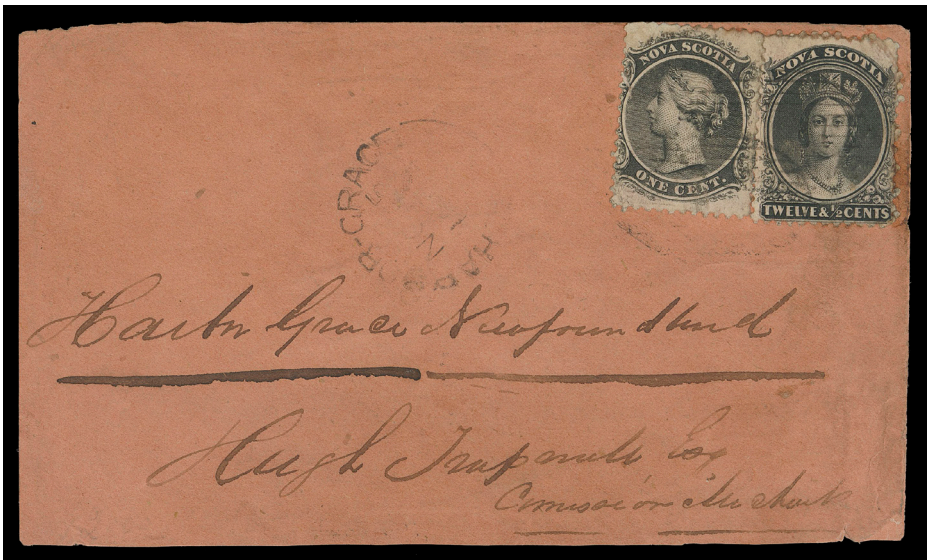 NOVA SCOTIA
ONE CENT.
NOVA SCOTIA
TWELVE & ½ CENTS
HARBOR-GRACE
Harbr Grace Newfoundland
Hugh Trapnell Esq
Comission Merchant